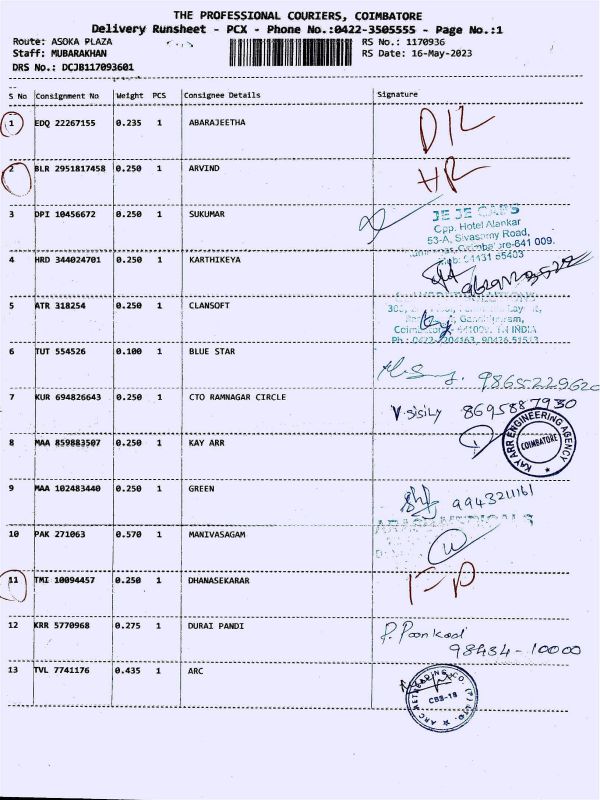 THE PROFESSIONAL COURIERS, COIMBATORE
Delivery Runsheet - PCX - Phone No.:0422-3505555 - Page No.:1
Route: ASOKA PLAZA RS No.: 1170936
Staff: MUBARAKHAN RS Date: 16-May-2023
DRS No.: DCJB117093601
S No Consignment No Weight PCS Consignee Details Signature
1 EDQ 22267155 0.235 1 ABARAJEETHA
2 BLR 2951817458 0.250 1 ARVIND
HR
3 DPI 10456672 0.250 1 SUKUMAR
JE JE CABS
Opp. Hotel Alankar
53-A, Sivasamy Road,
Coimbatore-641 009.
4 HRD 344024701 0.250 1 KARTHIKEYA
5 ATR 318254 0.250 1 CLANSOFT
INDIA
6 TUT 554526 0.100 1 BLUE STAR
9865229620
7 KUR 694826643 0.250 1 CTO RAMNAGAR CIRCLE
V.sisily 8695887930
8 MAA 859883507 0.250 1 KAY ARR
KAY ARR ENGINEERING AGENCY
COIMBATORE
9 MAA 102483440 0.250 1 GREEN
9943211161
10 PAK 271063 0.570 1 MANIVASAGAM
11 TMI 10094457 0.250 1 DHANASEKARAR
12 KRR 5770968 0.275 1 DURAI PANDI
P. Poonkodi
98434-10000
13 TVL 7741176 0.435 1 ARC
CBS-18